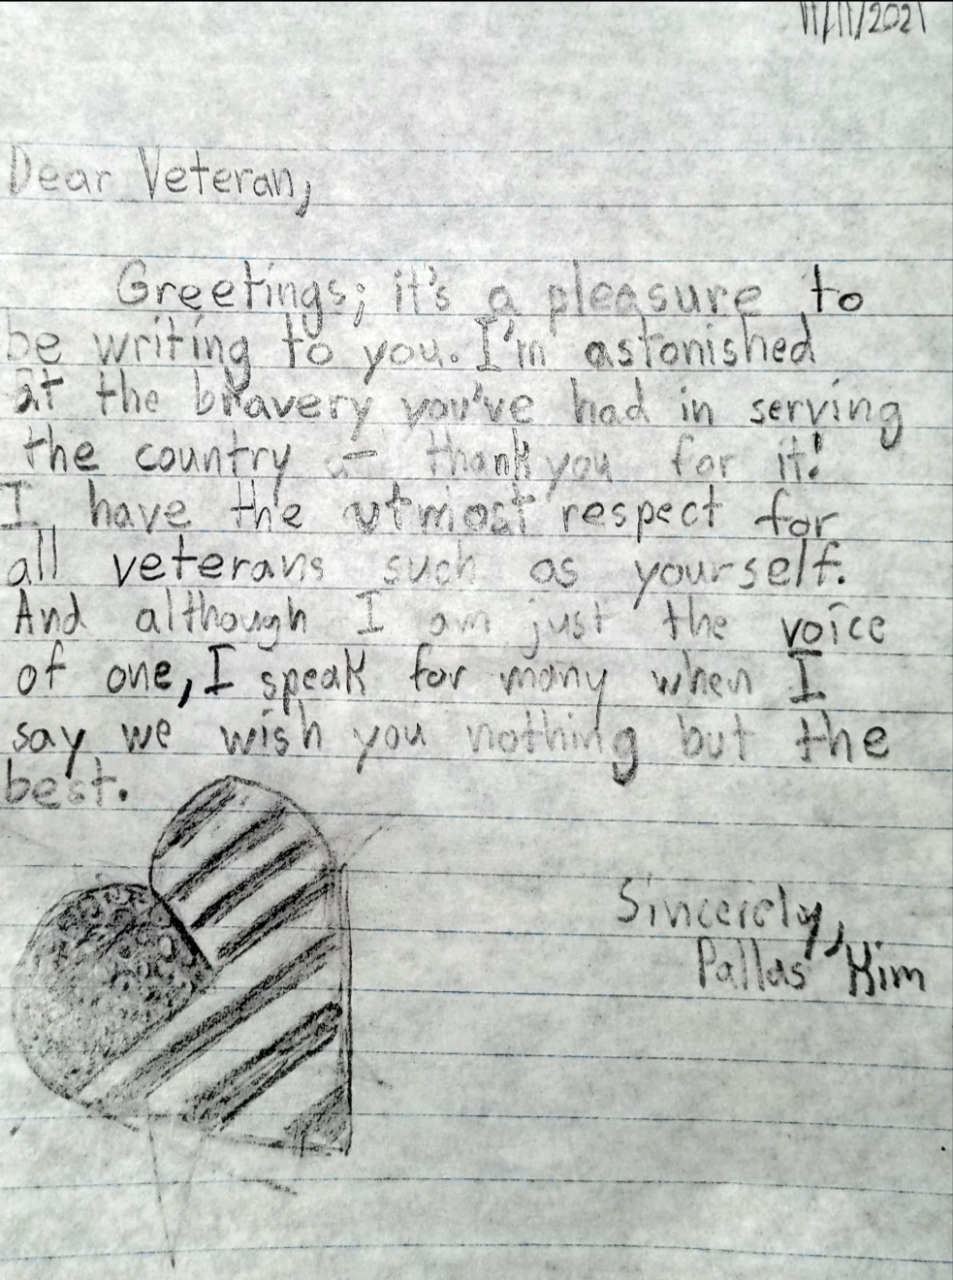 11/11/2021
Dear Veteran,
Greetings; it's a pleasure to
be writing to you. I'm astonished
at the bravery you've had in serving
the country - thank you for it!
I have the utmost respect for
all veterans such as yourself.
And although I am just the voice
of one, I speak for many when I
say we wish you nothing but the
best.
Sincerely,
Pallas Kim